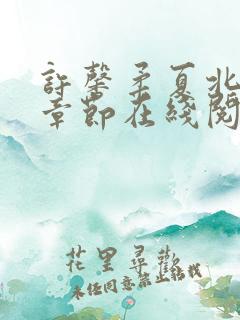 許馨柔夏北
章節在綫閱
花里尋歡
未經同意禁止轉載